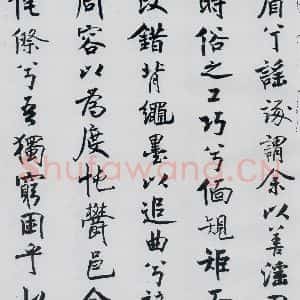 眉兮謠諑謂余以善淫
時俗之工巧兮偭規矩而
改錯背繩墨以追曲兮
周容以為度忳鬱邑余
侘傺兮吾獨窮困乎
Shufawang.CN